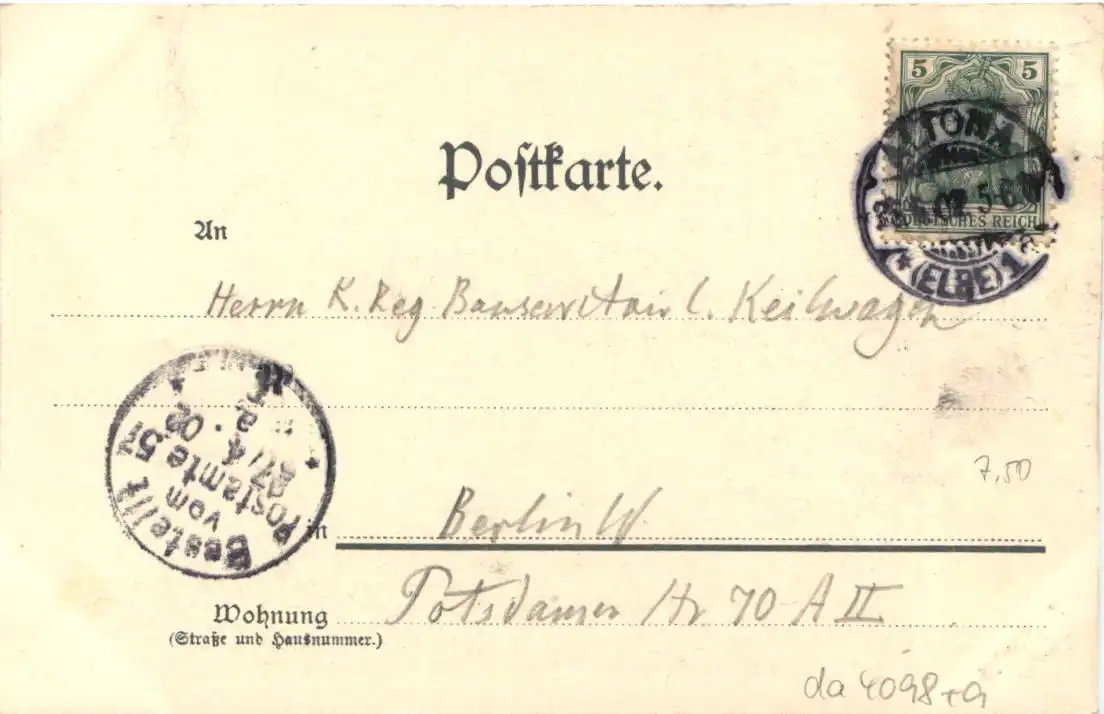 5 5
DEUTSCHES REICH
ALTONA
02. 5-6
* (ELBE) 1
Postkarte.
An
Herrn K. Reg. L. Keilwagen
Bestellt
vom
Postamte 57
27/4. 02
in Berlin W.
Wohnung Potsdamer Str 70 A II
(Straße und Hausnummer.)
7,50
da 4098+a